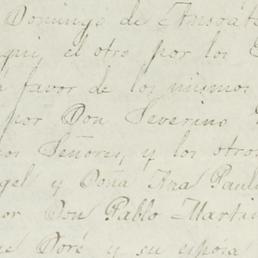 Domingo de Amorós
qui, el otro por los
favor de los mismos
por Don Severino
os Señores, y los otros
gel y Doña Ana Paul
or Don Pablo Martin
ue Doré y su esposa